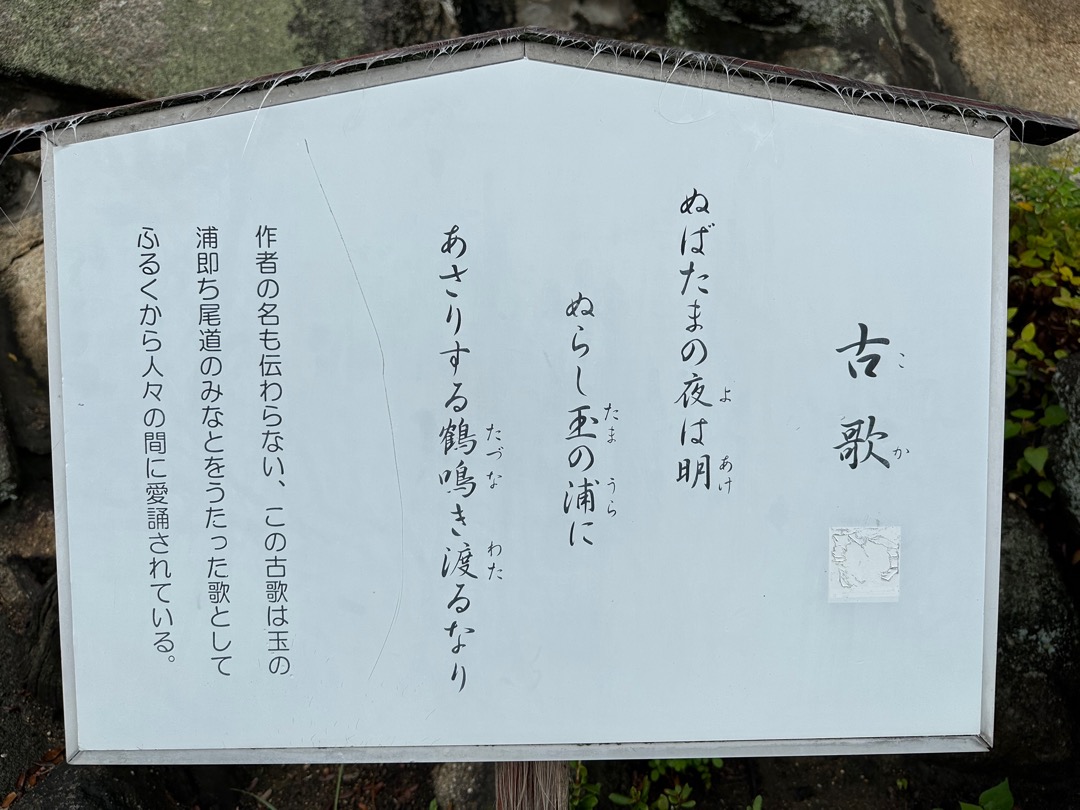 古歌
ぬばたまの夜は明
ぬらし玉の浦に
あさりする鶴鳴き渡るなり
作者の名も伝わらない、この古歌は玉の
浦即ち尾道のみなとをうたった歌として
ふるくから人々の間に愛誦されている。